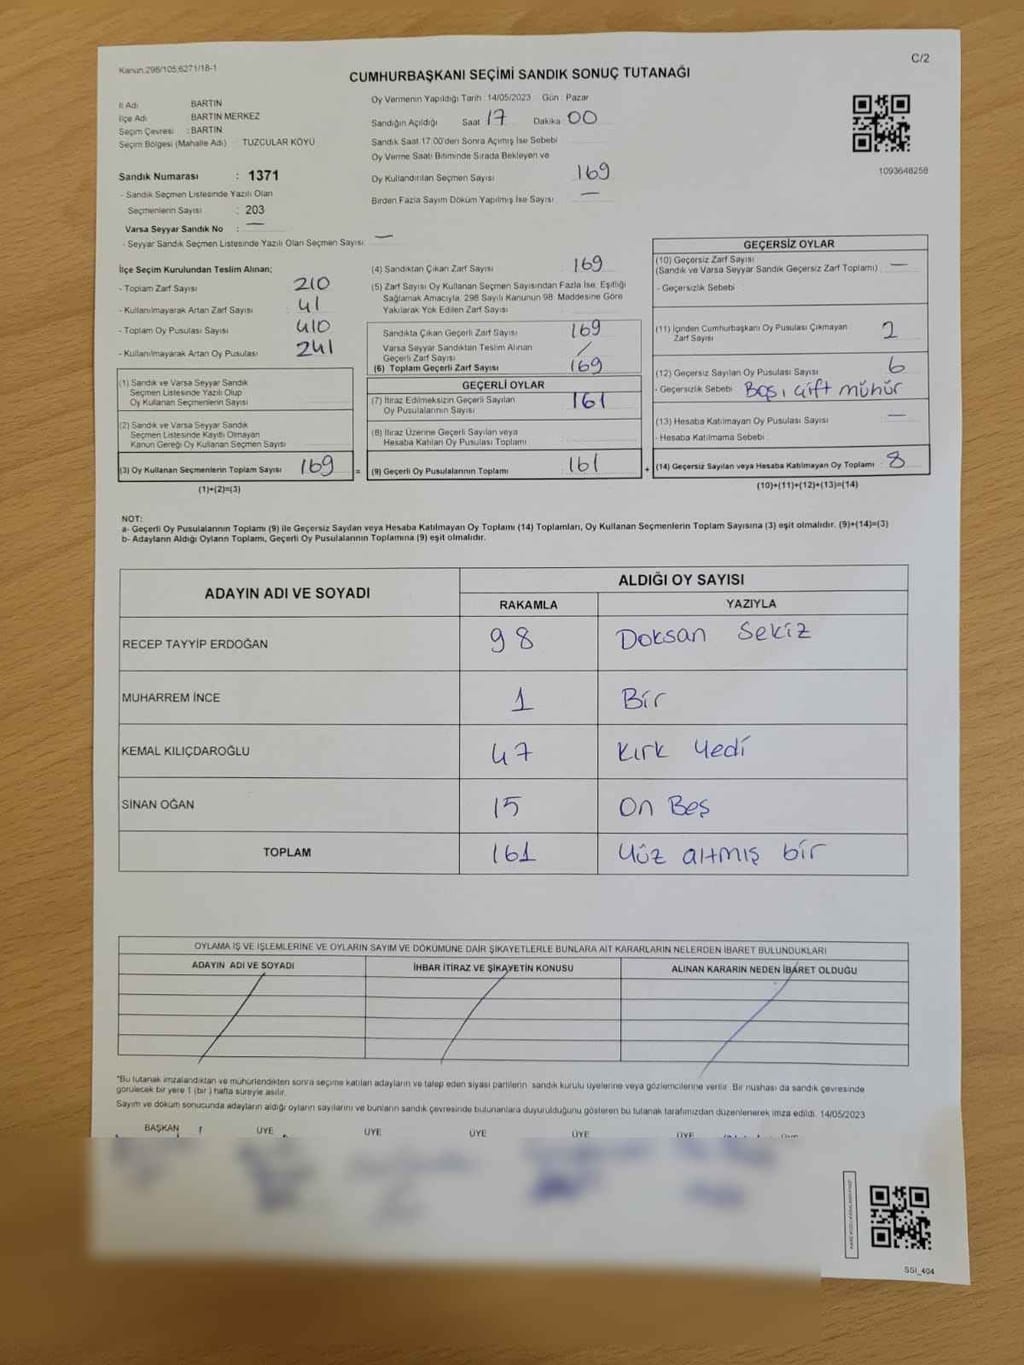 Kanun:298/105;6271/18-1
C/2
CUMHURBAŞKANI SEÇİMİ SANDIK SONUÇ TUTANAĞI
İl Adı BARTIN
İlçe Adı BARTIN MERKEZ
Seçim Çevresi : BARTIN
Seçim Bölgesi (Mahalle Adı) TUZCULAR KÖYÜ
Oy Vermenin Yapıldığı Tarih : 14/05/2023 Gün : Pazar
Sandığın Açıldığı Saat 17 Dakika 00
Sandık Saat 17:00'den Sonra Açmış İse Sebebi
Oy Verme Saati Bitiminde Sırada Bekleyen ve
Oy Kullandırılan Seçmen Sayısı 169
Birden Fazla Sayım Döküm Yapılmış İse Sayısı —
1093648258
Sandık Numarası : 1371
- Sandık Seçmen Listesinde Yazılı Olan
Seçmenlerin Sayısı : 203
Varsa Seyyar Sandık No : —
- Seyyar Sandık Seçmen Listesinde Yazılı Olan Seçmen Sayısı —
İlçe Seçim Kurulundan Teslim Alınan;
- Toplam Zarf Sayısı 210
- Kullanılmayarak Artan Zarf Sayısı 41
- Toplam Oy Pusulası Sayısı 410
- Kullanılmayarak Artan Oy Pusulası 241
(1) Sandık ve Varsa Seyyar Sandık
Seçmen Listesinde Yazılı Olup
Oy Kullanan Seçmenlerin Sayısı
(2) Sandık ve Varsa Seyyar Sandık
Seçmen Listesinde Kayıtlı Olmayan
Kanun Gereği Oy Kullanan Seçmen Sayısı
(3) Oy Kullanan Seçmenlerin Toplam Sayısı 169 =
(1)+(2)=(3)
(4) Sandıktan Çıkan Zarf Sayısı 169
(5) Zarf Sayısı Oy Kullanan Seçmen Sayısından Fazla İse, Eşitliği
Sağlamak Amacıyla, 298 Sayılı Kanunun 98. Maddesine Göre
Yakılarak Yok Edilen Zarf Sayısı
Sandıkta Çıkan Geçerli Zarf Sayısı 169
Varsa Seyyar Sandıktan Teslim Alınan
Geçerli Zarf Sayısı /
(6) Toplam Geçerli Zarf Sayısı 169
GEÇERLİ OYLAR
(7) İtiraz Edilmeksizin Geçerli Sayılan
Oy Pusulalarının Sayısı 161
(8) İtiraz Üzerine Geçerli Sayılan veya
Hesaba Katılan Oy Pusulası Toplamı
(9) Geçerli Oy Pusulalarının Toplamı 161 +
GEÇERSİZ OYLAR
(10) Geçersiz Zarf Sayısı
(Sandık ve Varsa Seyyar Sandık Geçersiz Zarf Toplamı) —
- Geçersizlik Sebebi
(11) İçinden Cumhurbaşkanı Oy Pusulası Çıkmayan
Zarf Sayısı 2
(12) Geçersiz Sayılan Oy Pusulası Sayısı 6
- Geçersizlik Sebebi Boş, çift mühür
(13) Hesaba Katılmayan Oy Pusulası Sayısı —
- Hesaba Katılmama Sebebi
(14) Geçersiz Sayılan veya Hesaba Katılmayan Oy Toplamı 8
(10)+(11)+(12)+(13)=(14)
NOT:
a- Geçerli Oy Pusulalarının Toplamı (9) ile Geçersiz Sayılan veya Hesaba Katılmayan Oy Toplamı (14) Toplamları, Oy Kullanan Seçmenlerin Toplam Sayısına (3) eşit olmalıdır. (9)+(14)=(3)
b- Adayların Aldığı Oyların Toplamı, Geçerli Oy Pusulalarının Toplamına (9) eşit olmalıdır.
ADAYIN ADI VE SOYADI ALDIĞI OY SAYISI
RAKAMLA YAZIYLA
RECEP TAYYİP ERDOĞAN 98 Doksan Sekiz
MUHARREM İNCE 1 Bir
KEMAL KILIÇDAROĞLU 47 Kırk Yedi
SİNAN OĞAN 15 On Beş
TOPLAM 161 Yüz altmış bir
OYLAMA İŞ VE İŞLEMLERİNE VE OYLARIN SAYIM VE DÖKÜMÜNE DAİR ŞİKAYETLERLE BUNLARA AİT KARARLARIN NELERDEN İBARET BULUNDUKLARI
ADAYIN ADI VE SOYADI İHBAR İTİRAZ VE ŞİKAYETİN KONUSU ALINAN KARARIN NEDEN İBARET OLDUĞU
*Bu tutanak imzalandıktan ve mühürlendikten sonra seçime katılan adayların ve talep eden siyasi partilerin sandık kurulu üyelerine veya gözlemcilerine verilir. Bir nüshası da sandık çevresinde
görülecek bir yere 1 (bir) hafta süreyle asılır.
Sayım ve döküm sonucunda adayların aldığı oyların sayılarını ve bunların sandık çevresinde bulunanlara duyurulduğunu gösteren bu tutanak tarafımızdan düzenlenerek imza edildi. 14/05/2023
BAŞKAN ÜYE ÜYE ÜYE ÜYE ÜYE
SSI_404